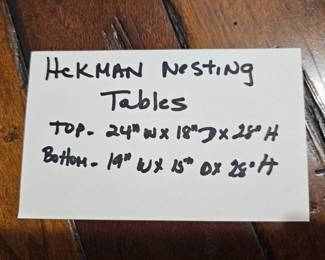 HEKMAN NESTING
TABLES
TOP - 24" W x 18" D x 28" H
BOTTOM - 19" W x 15" D x 28" H